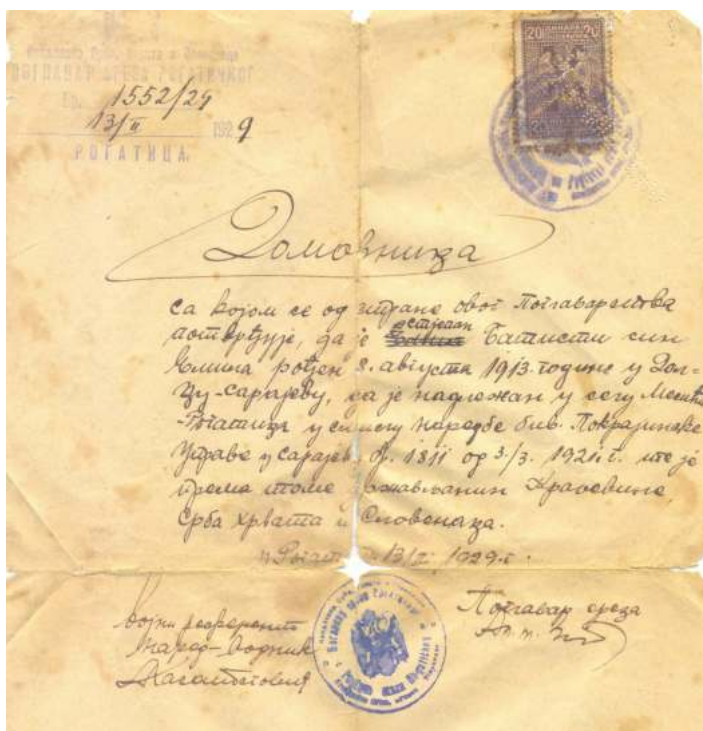 Краљевина Срба, Хрвата и Словенаца
ПОГЛАВАР СРЕЗА РОГАТИЧКОГ
Бр. 1552/29
13/II 1929
РОГАТИЦА.
20 ДИНАРА 20
Домовница
са којом се од стране овог Поглаварства
потврђује, да је Стјепан Батисти син
рођен 8. августа 1913. године у Дол-
цу-Сарајеву, да је надлежан у селу
Рогатица у смислу наредбе бив. Покрајинске
Управе у Сарајеву Бр. 1811 од 3./3. 1921. г. те је
према томе држављанин Краљевине
Срба Хрвата и Словенаца.
у Рогатици 13/II 1929. г.
Војни референт
Поглавар среза
наред-водник